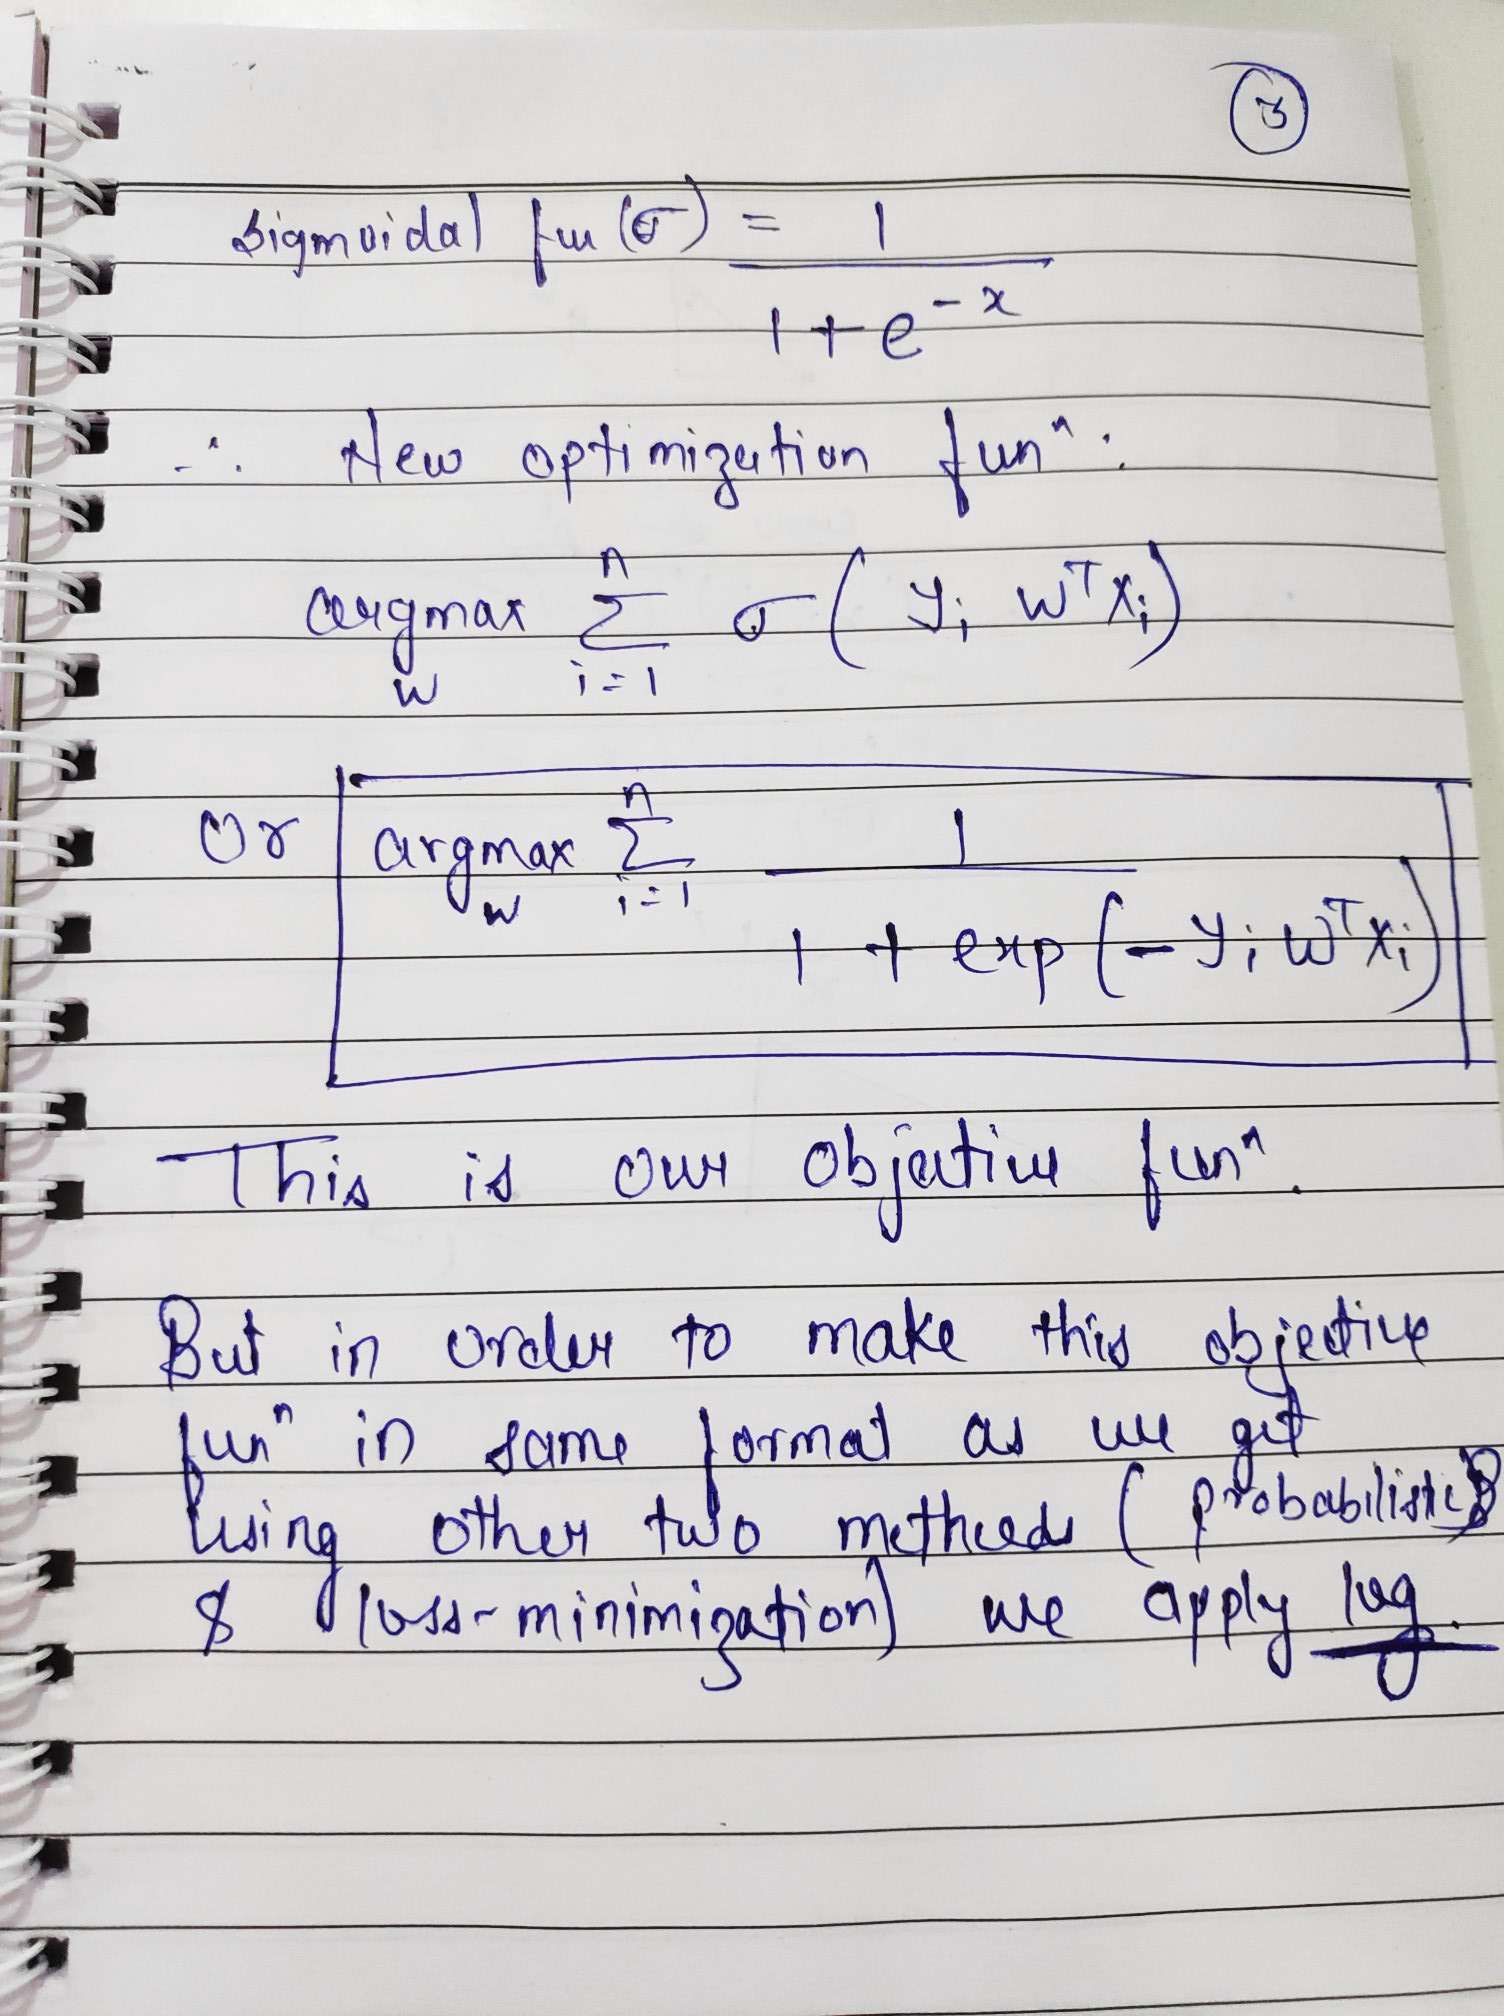 3
Sigmoidal fun (σ) = 1 / 1 + e^-x
∴ New optimization funⁿ :
argmax_w Σ_{i=1}^{n} σ ( y_i w^T x_i )
Or argmax_w Σ_{i=1}^{n} 1 / 1 + exp (- y_i w^T x_i)
This is our objective funⁿ.
But in order to make this objective
funⁿ in same format as we get
using other two methods ( probabilistic
& loss-minimization) we apply log.